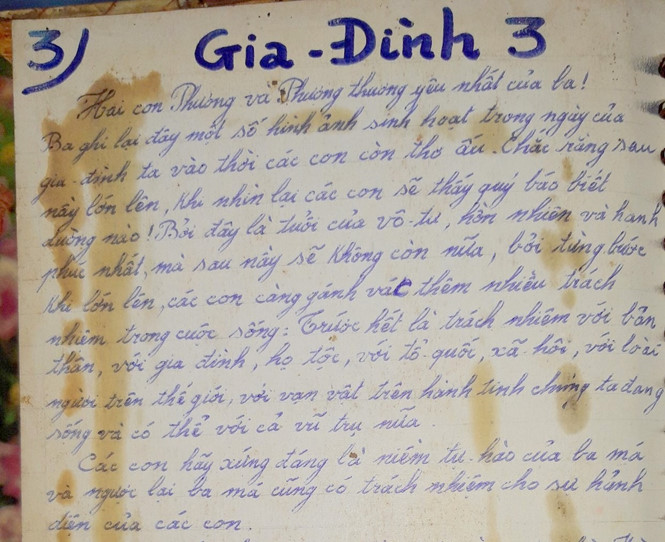 3) Gia - Đình 3
Hai con Phượng và Phương thương yêu nhất của ba!
Ba ghi lại đây một số hình ảnh sinh hoạt trong ngày của
gia - đình ta vào thời các con còn thơ ấu. Chắc rằng sau
này lớn lên, khi nhìn lại các con sẽ thấy quý báo biết
dường nào! Bởi đây là tuổi của vô-tư, hồn nhiên và hạnh
phúc nhất, mà sau này sẽ không còn nữa, bởi từng bước
khi lớn lên, các con càng gánh vác thêm nhiều trách
nhiệm trong cuộc sống: Trước hết là trách nhiệm với bản
thân, với gia đình, họ tộc, với tổ-quốc, xã-hội, với loài
người trên thế giới, với vạn vật trên hành tinh chúng ta đang
sống và có thể với cả vũ trụ nữa.
Các con hãy xứng đáng là niềm tự-hào của ba má
và ngược lại ba má cũng có trách nhiệm cho sự hảnh
diện của các con.